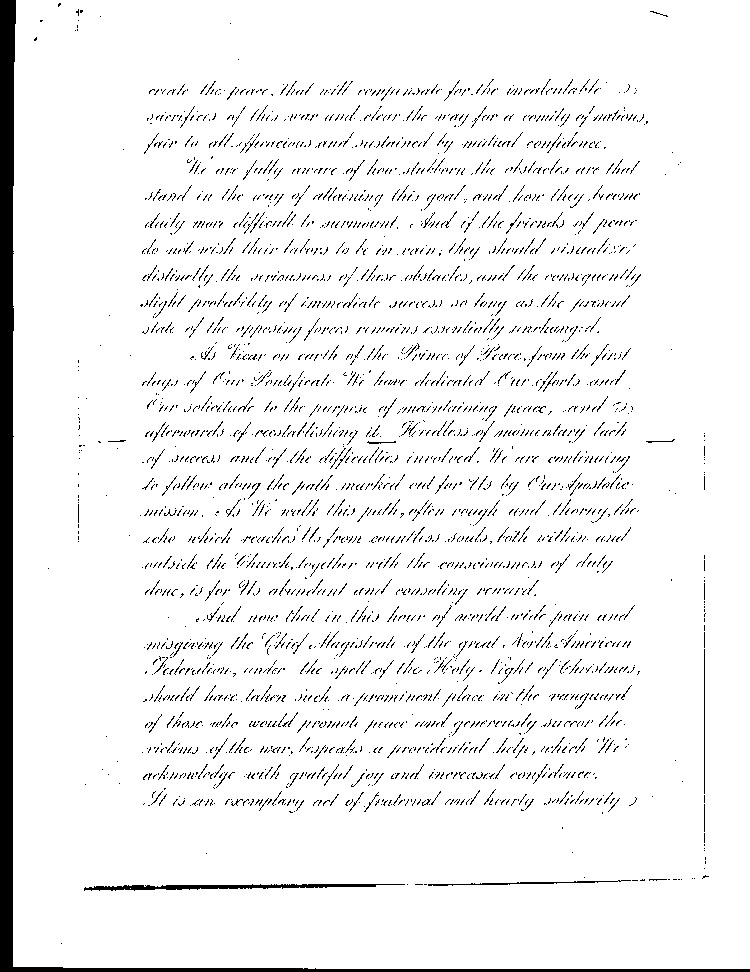 create the peace, that will compensate for the incalculable
sacrifices of this war and clear the way for a comity of nations,
fair to all, efficacious and sustained by mutual confidence.
We are fully aware of how stubborn the obstacles are that
stand in the way of attaining this goal, and how they become
daily more difficult to surmount. And if the friends of peace
do not wish their labors to be in vain, they should visualize
distinctly the seriousness of these obstacles, and the consequently
slight probability of immediate success so long as the present
state of the opposing forces remains essentially unchanged.
As Vicar on earth of the Prince of Peace, from the first
days of Our Pontificate We have dedicated Our efforts and
Our solicitude to the purpose of maintaining peace, and
afterwards of reestablishing it. Heedless of momentary lack
of success and of the difficulties involved, We are continuing
to follow along the path marked out for Us by Our Apostolic
mission. As We walk this path, often rough and thorny, the
echo which reaches Us from countless souls, both within and
outside the Church, together with the consciousness of duty
done, is for Us abundant and consoling reward.
And now that in this hour of world-wide pain and
misgiving the Chief Magistrate of the great North American
Federation, under the spell of the Holy Night of Christmas,
should have taken such a prominent place in the vanguard
of those who would promote peace and generously succor the
victims of the war, bespeaks a providential help, which We
acknowledge with grateful joy and increased confidence.
It is an exemplary act of fraternal and hearty solidarity